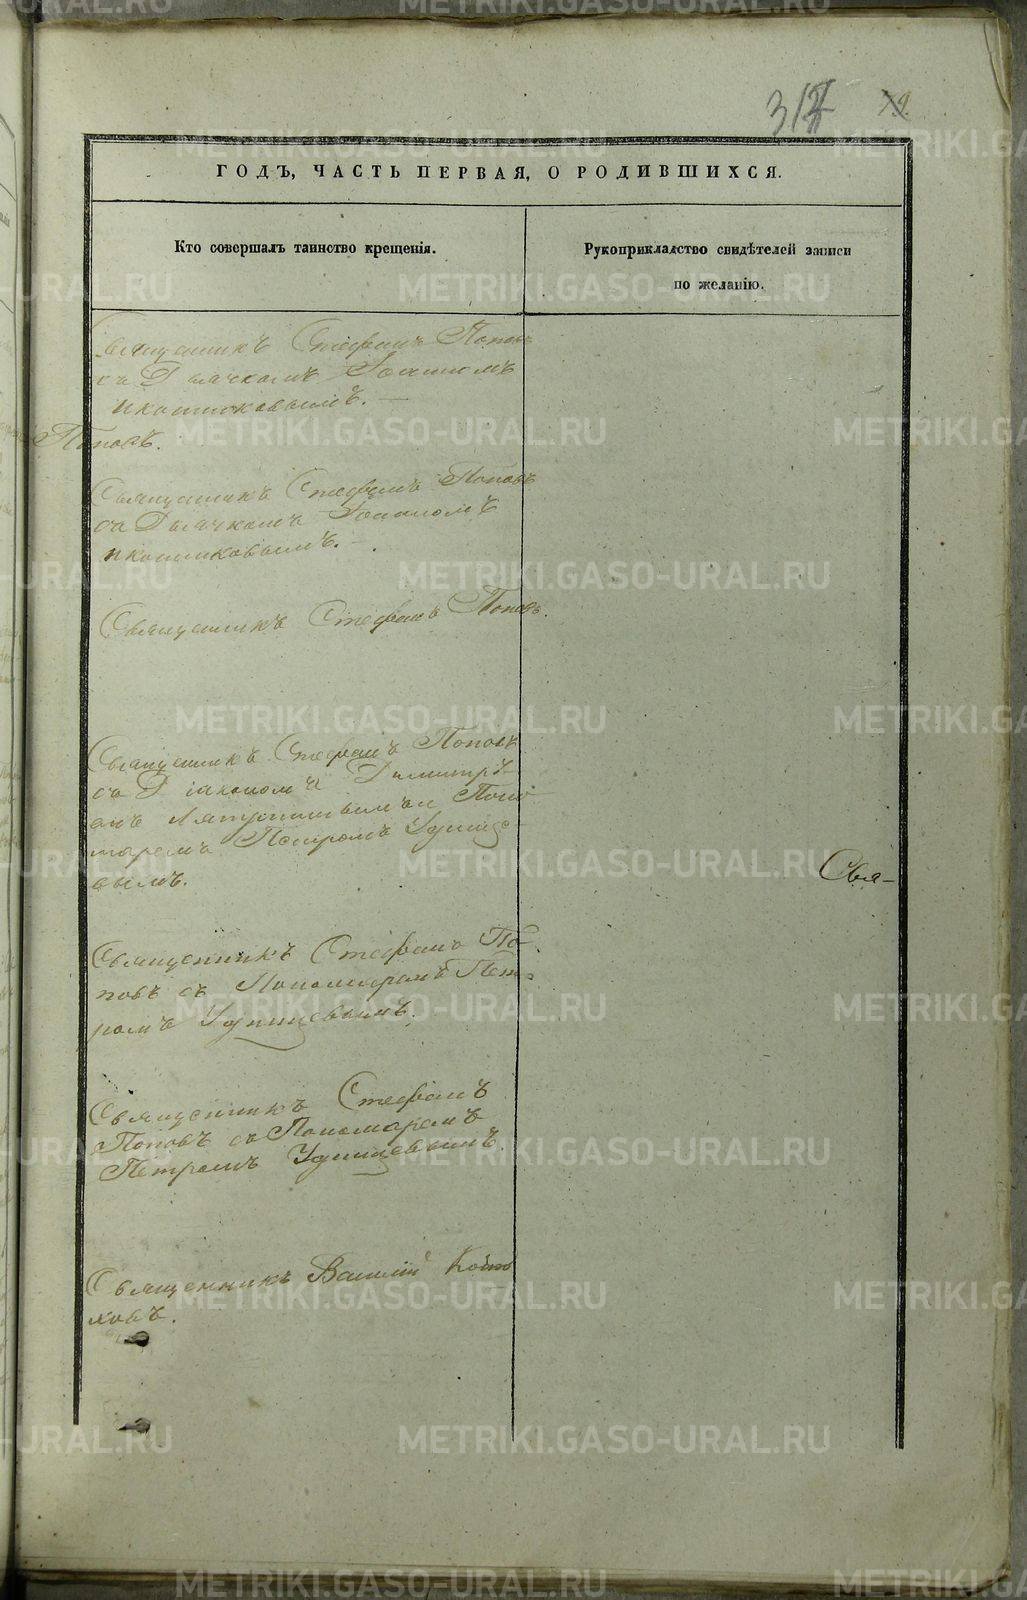 ГОДЪ, ЧАСТЬ ПЕРВАЯ, О РОДИВШИХСЯ.
Кто совершалъ таинство крещенія.
Рукоприкладство свидѣтелей записи
по желанію.
Священникъ Стефанъ Поповъ
съ Дьячкомъ Іоанномъ
Иконниковымъ. —
Поповъ.
Священникъ Стефанъ Поповъ
съ Дьячкомъ Іоанномъ
Иконниковымъ. —
Священникъ Стефанъ Поповъ.
Священникъ Стефанъ Поповъ
съ Діакономъ Димитрі-
емъ Поно-
маремъ Петромъ
вымъ.
Свя-
Священникъ Стефанъ По-
повъ съ Пономаремъ Пет-
ромъ
Священникъ Стефанъ
Поповъ съ Пономаремъ
Петромъ
Священникъ Василій
ковъ.
METRIKI.GASO-URAL.RU